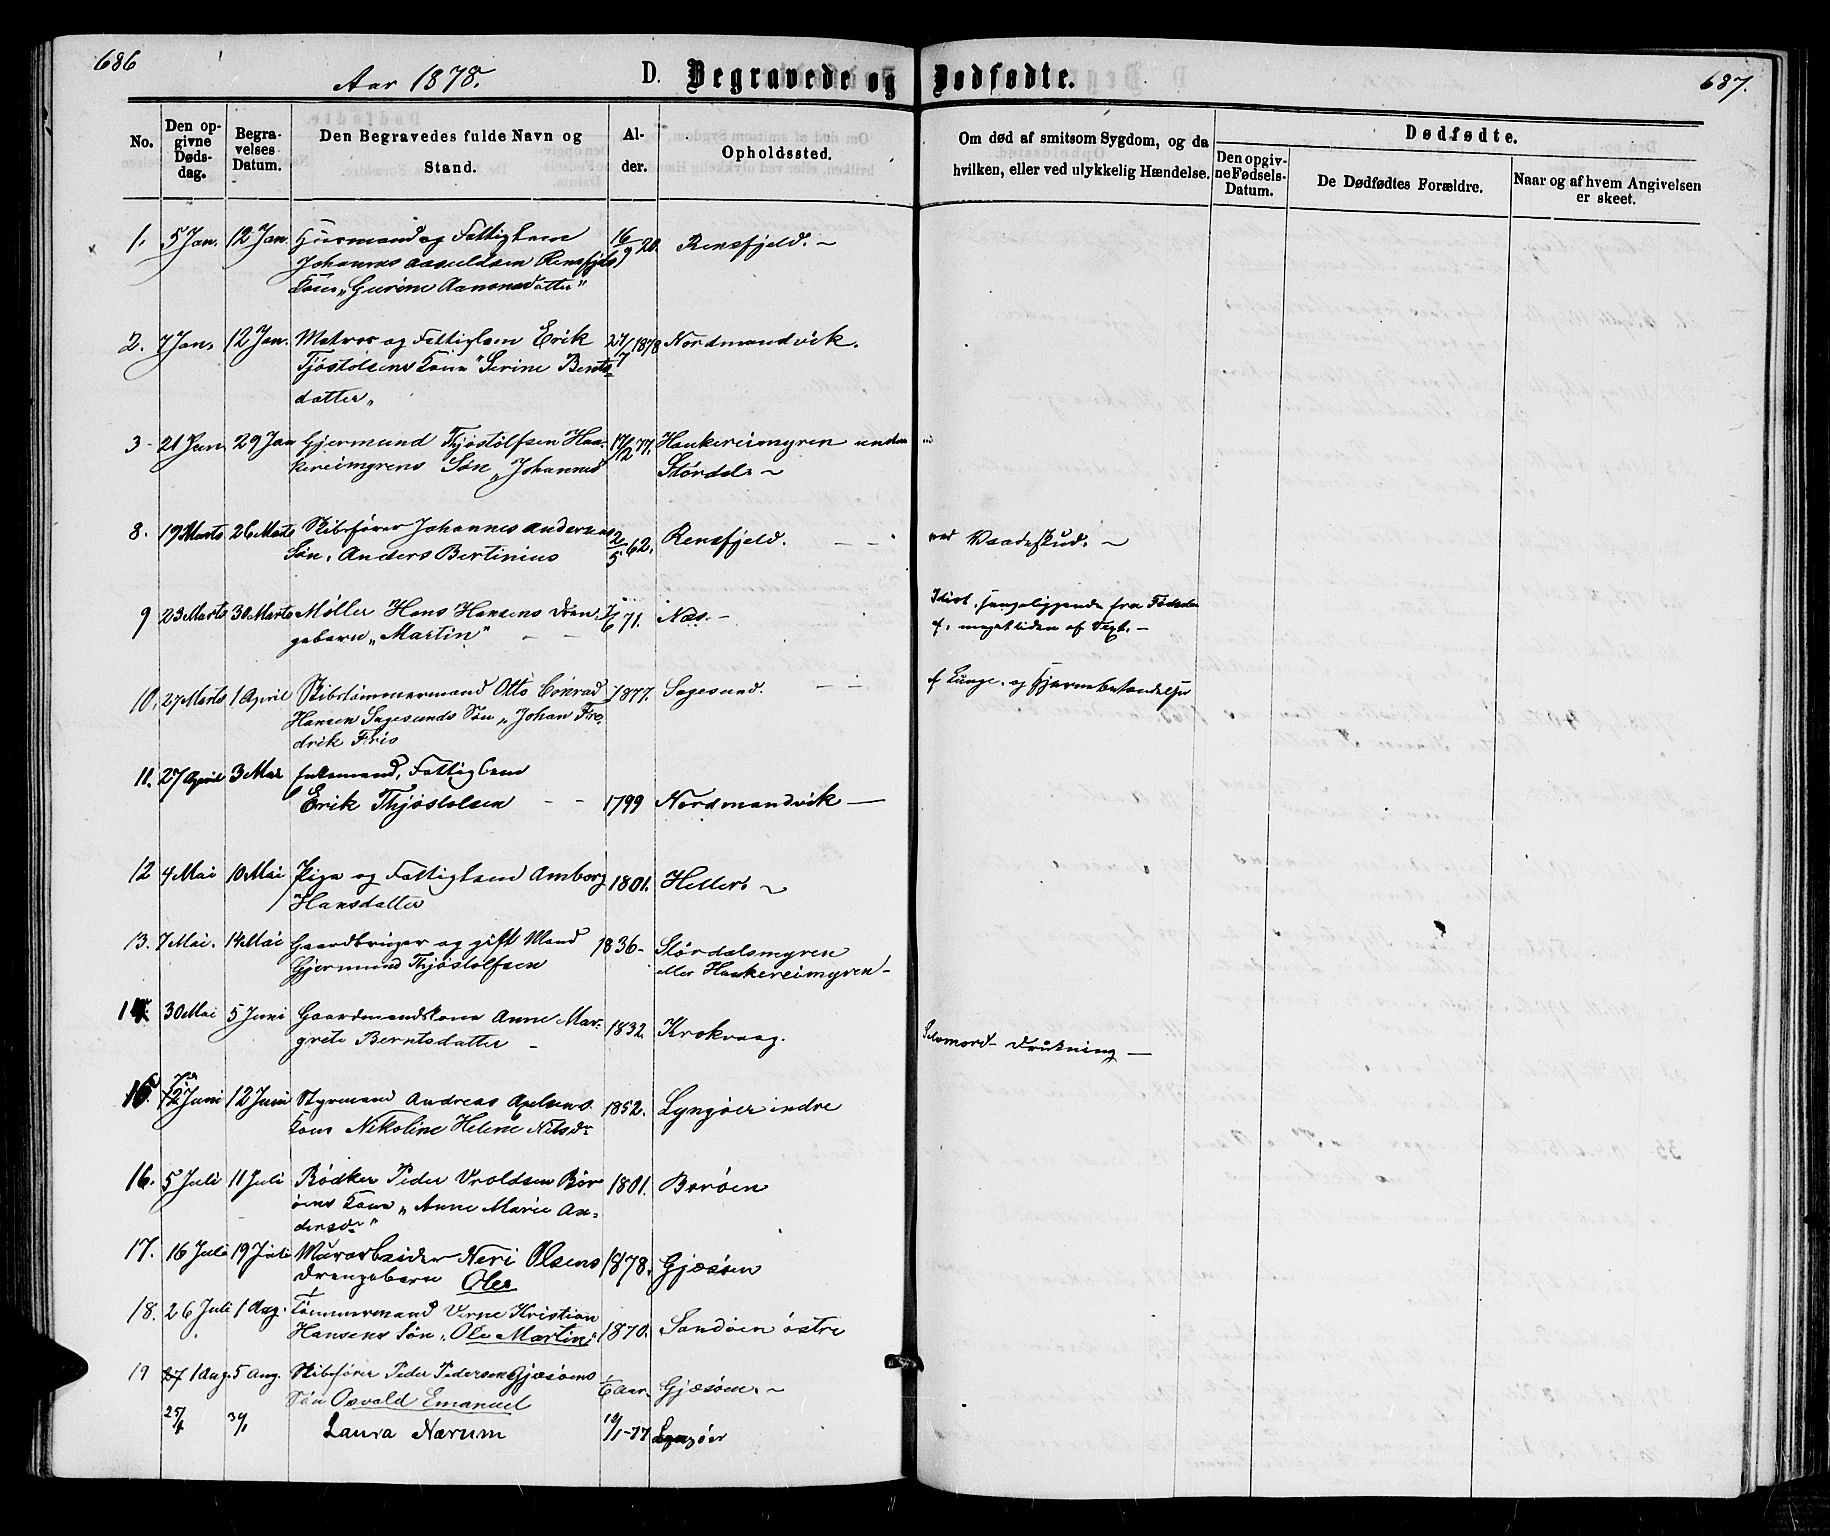 686
Aar 1878.
D. Begravede og Dødfødte.
687.
No.
Den opgivne Dødsdag.
Begravelses Datum.
Den Begravedes fulde Navn og Stand.
Alder.
Opholdssted.
Om død af smitsom Sygdom, og da hvilken, eller ved ulykkelig Hændelse.
Dødfødte.
Den opgivne Fødsels-Datum.
De Dødfødtes Forældre.
Naar og af hvem Angivelsen er skeet.
1. 5 Jan. 12 Jan. Husmand og Fattiglem 16/9 20. Rensfjeld. ~
Johannes Aasuldsen Rensfjelds
Kone „Gurine Aanonsdatter"
2. 7 Jan. 12 Jan. Matros og Fattiglem Erik 27/7 1878 Nordmandvik.
Tjöstolsens Kone „Serine Bents-
datter„
3 - 21 Jan 29 Jan Gjermund Thjöstolfsen Hau- 17/12 77. Haukereimyren under
kereimyrens Søn „Johannes Stördal ~
8. 19 Marts 26 Marts Skibsfører Johannes Andersens 2/5 62. Rensfjeld. — — ved Vaadeskud. ~
Søn. Anders Bertinius
9 23 Marts 30 Marts Møller Hans Hansens Dren- /6 71. Næs. - Idiot, sengeliggende fra Fødselen
gebarn „Martin" — — af. meget liden af Vext. —
10. 27 Marts 1 April Skibstømmermand Otto Conrad 1877. Sagesund. — — af Lunge- og Hjernebetændelse
Hansen Sagesunds Søn „Johan Fre
drik Friis
11. 27 April 3 Mai Enkemand, Fattiglem
Erik Thjöstolsen - - 1799 Nordmandvik —
12 4 Mai 10 Mai Pige og Fattiglem Amborg 1801. Hellers ~
Hansdatter
13. 7 Mai. 14 Mai Gaardbruger og gift Mand 1836- Stördalsmyren
Gjermund Thjöstolfsen eller Haukereimyren -
14. 30 Mai 5 Juni Gaardmandskone Anne Mar- 1832. Krokvaag. Selvmord - Drukning —
grete Berntsdatter -
15. 2 Juni 12 Juni Styrmand Andreas Axelsens 1852. Lyngöer indre
Kone Nikoline Helene Nilsdr
16. 5 Juli 11 Juli Bödker Peder Vroldsen Bor 1801. Boröen
öens Kone „Anne Marie An-
dersdr"
17. 16 Juli 19 Juli Murarbeider Neri Olsens 1878. Gjæsöen
Drengebarn Oles
18. 26 Juli 1 Aug. Tømmermand Verne Kristian
Hansens Søn „Ole Martin" 1870. Sandöen östre
19 27 1 Aug. 5 Aug. Skibsfører Peder Pedersen Gjæsöens 6 Aar. Gjæsöen. ~
Søn Osvald Emanuel
25/1 30/1 Laura Narum 12/1-77 Lyngöer